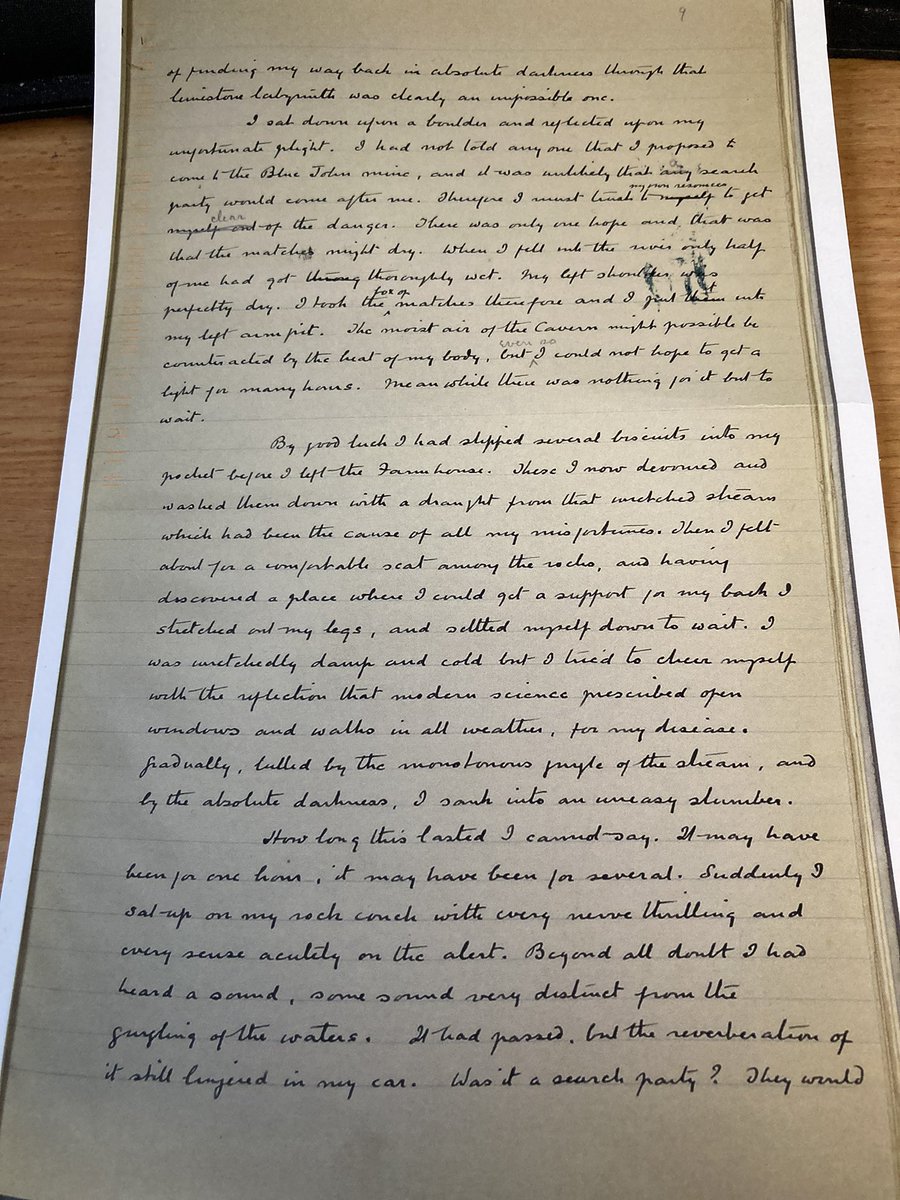 9
of finding my way back in absolute darkness through that
limestone labyrinth was clearly an impossible one.
I sat down upon a boulder and reflected upon my
unfortunate plight. I had not told anyone that I proposed to
come to the Blue John mine, and it was unlikely that any a search
party would come after me. Therefore I must trust to myself my own resources to get
myself out clear of the danger. There was only one hope and that was
that the matches might dry. When I fell into the river only half
of me had got throug thoroughly wet. My left shoulder was
perfectly dry. I took the box of matches therefore and I put them into
my left armpit. The moist air of the Cavern might possible be
counteracted by the heat of my body, but even so I could not hope to get a
light for many hours. Meanwhile there was nothing for it but to
wait.
By good luck I had slipped several biscuits into my
pocket before I left the Farmhouse. These I now devoured and
washed them down with a draught from that wretched stream
which had been the cause of all my misfortunes. Then I felt
about for a comfortable seat among the rocks, and having
discovered a place where I could get a support for my back I
stretched out my legs, and settled myself down to wait. I
was wretchedly damp and cold but I tried to cheer myself
with the reflection that modern science prescribed open
windows and walks in all weather, for my disease.
Gradually, lulled by the monotonous gurgle of the stream, and
by the absolute darkness, I sank into an uneasy slumber.
How long this lasted I cannot say. It may have
been for one hour, it may have been for several. Suddenly I
sat up on my rock couch with every nerve thrilling and
every sense acutely on the alert. Beyond all doubt I had
heard a sound, some sound very distinct from the
gurgling of the waters. It had passed, but the reverberation of
it still lingered in my ear. Was it a search party? They would